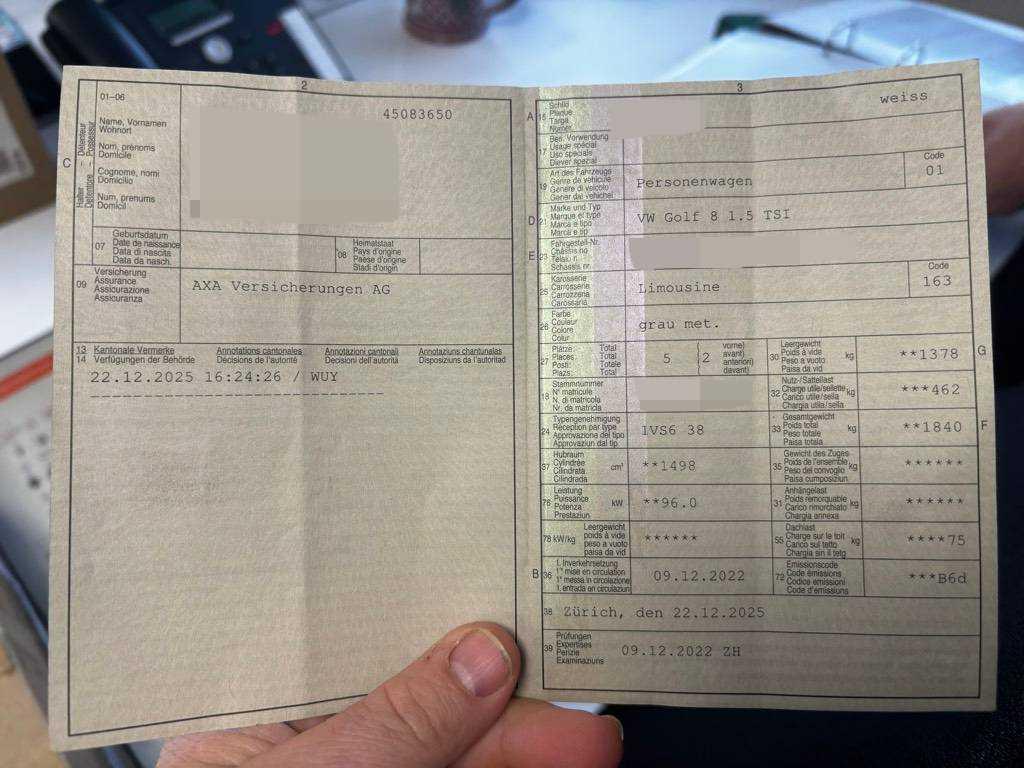 2
01–06
Name, Vornamen
Wohnort
Nom, prénoms
Domicile
Cognome, nomi
Domicilio
Num, prenums
Domicil
C
Halter – Détenteur
Detentore – Possessur
45083650
07
Geburtsdatum
Date de naissance
Data di nascita
Data da nasch.
08
Heimatstaat
Pays d'origine
Paese d'origine
Stadi d'origin
09
Versicherung
Assurance
Assicurazione
Assicuranza
AXA Versicherungen AG
13 Kantonale Vermerke Annotations cantonales Annotazioni cantonali Annotaziuns chantunalas
14 Verfügungen der Behörde Décisions de l'autorité Decisioni dell'autorità Disposiziuns da l'autoritad
22.12.2025 16:24:26 / WUY
3
A
Schild
Plaque
Targa
Numer
weiss
17
Bes. Verwendung
Usage spécial
Uso speciale
Diever spezial
19
Art des Fahrzeugs
Genre de véhicule
Genere di veicolo
Gener dal vehichel
Personenwagen
Code
01
D 21
Marke und Typ
Marque et type
Marca e tipo
Marca e tip
VW Golf 8 1.5 TSI
E 23
Fahrgestell-Nr.
Châssis no
Telaio n.
Schassis nr.
25
Karosserie
Carrosserie
Carrozzeria
Carossaria
Limousine
Code
163
26
Farbe
Couleur
Colore
Colur
grau met.
27
Plätze: Total
Places: Total
Posti: Totale
Plazs: Total
5 (2
vorne)
avant)
anteriori)
davant)
30
Leergewicht
Poids à vide
Peso a vuoto
Paisa da vid
kg
**1378
G
18
Stammnummer
N° matricule
N. di matricola
Nr. da matricla
32
Nutz-/Sattellast
Charge utile/sellette
Carico utile/sella
Chargia utila/sella
kg
***462
24
Typengenehmigung
Réception par type
Approvazione del tipo
Approvaziun dal tip
1VS6 38
33
Gesamtgewicht
Poids total
Peso totale
Paisa totala
kg
**1840
F
37
Hubraum
Cylindrée
Cilindrata
Cilindrada
cm³
**1498
35
Gewicht des Zuges
Poids de l'ensemble
Peso del convoglio
Paisa cumposiziun
kg
******
76
Leistung
Puissance
Potenza
Prestaziun
kW
**96.0
31
Anhängelast
Poids remorquable
Carico rimorchiato
Chargia annexa
kg
******
78 kW/kg
Leergewicht
poids à vide
peso a vuoto
paisa da vid
******
55
Dachlast
Charge sur le toit
Carico sul tetto
Chargia sin il tetg
kg
****75
B 36
1. Inverkehrsetzung
1re mise en circulation
1a messa in circolazione
1. entrada en circulaziun
09.12.2022
72
Emissionscode
Code émissions
Codice emissioni
Code d'emissiuns
***B6d
38
Zürich, den 22.12.2025
39
Prüfungen
Expertises
Perizie
Examinaziuns
09.12.2022 ZH